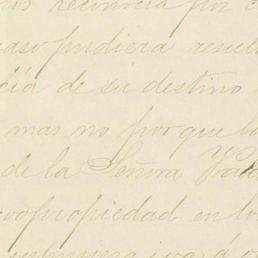 reconocia por
caso pudiera resul
cia de su destino
mas no porque la
de la Señora
propiedad en lo